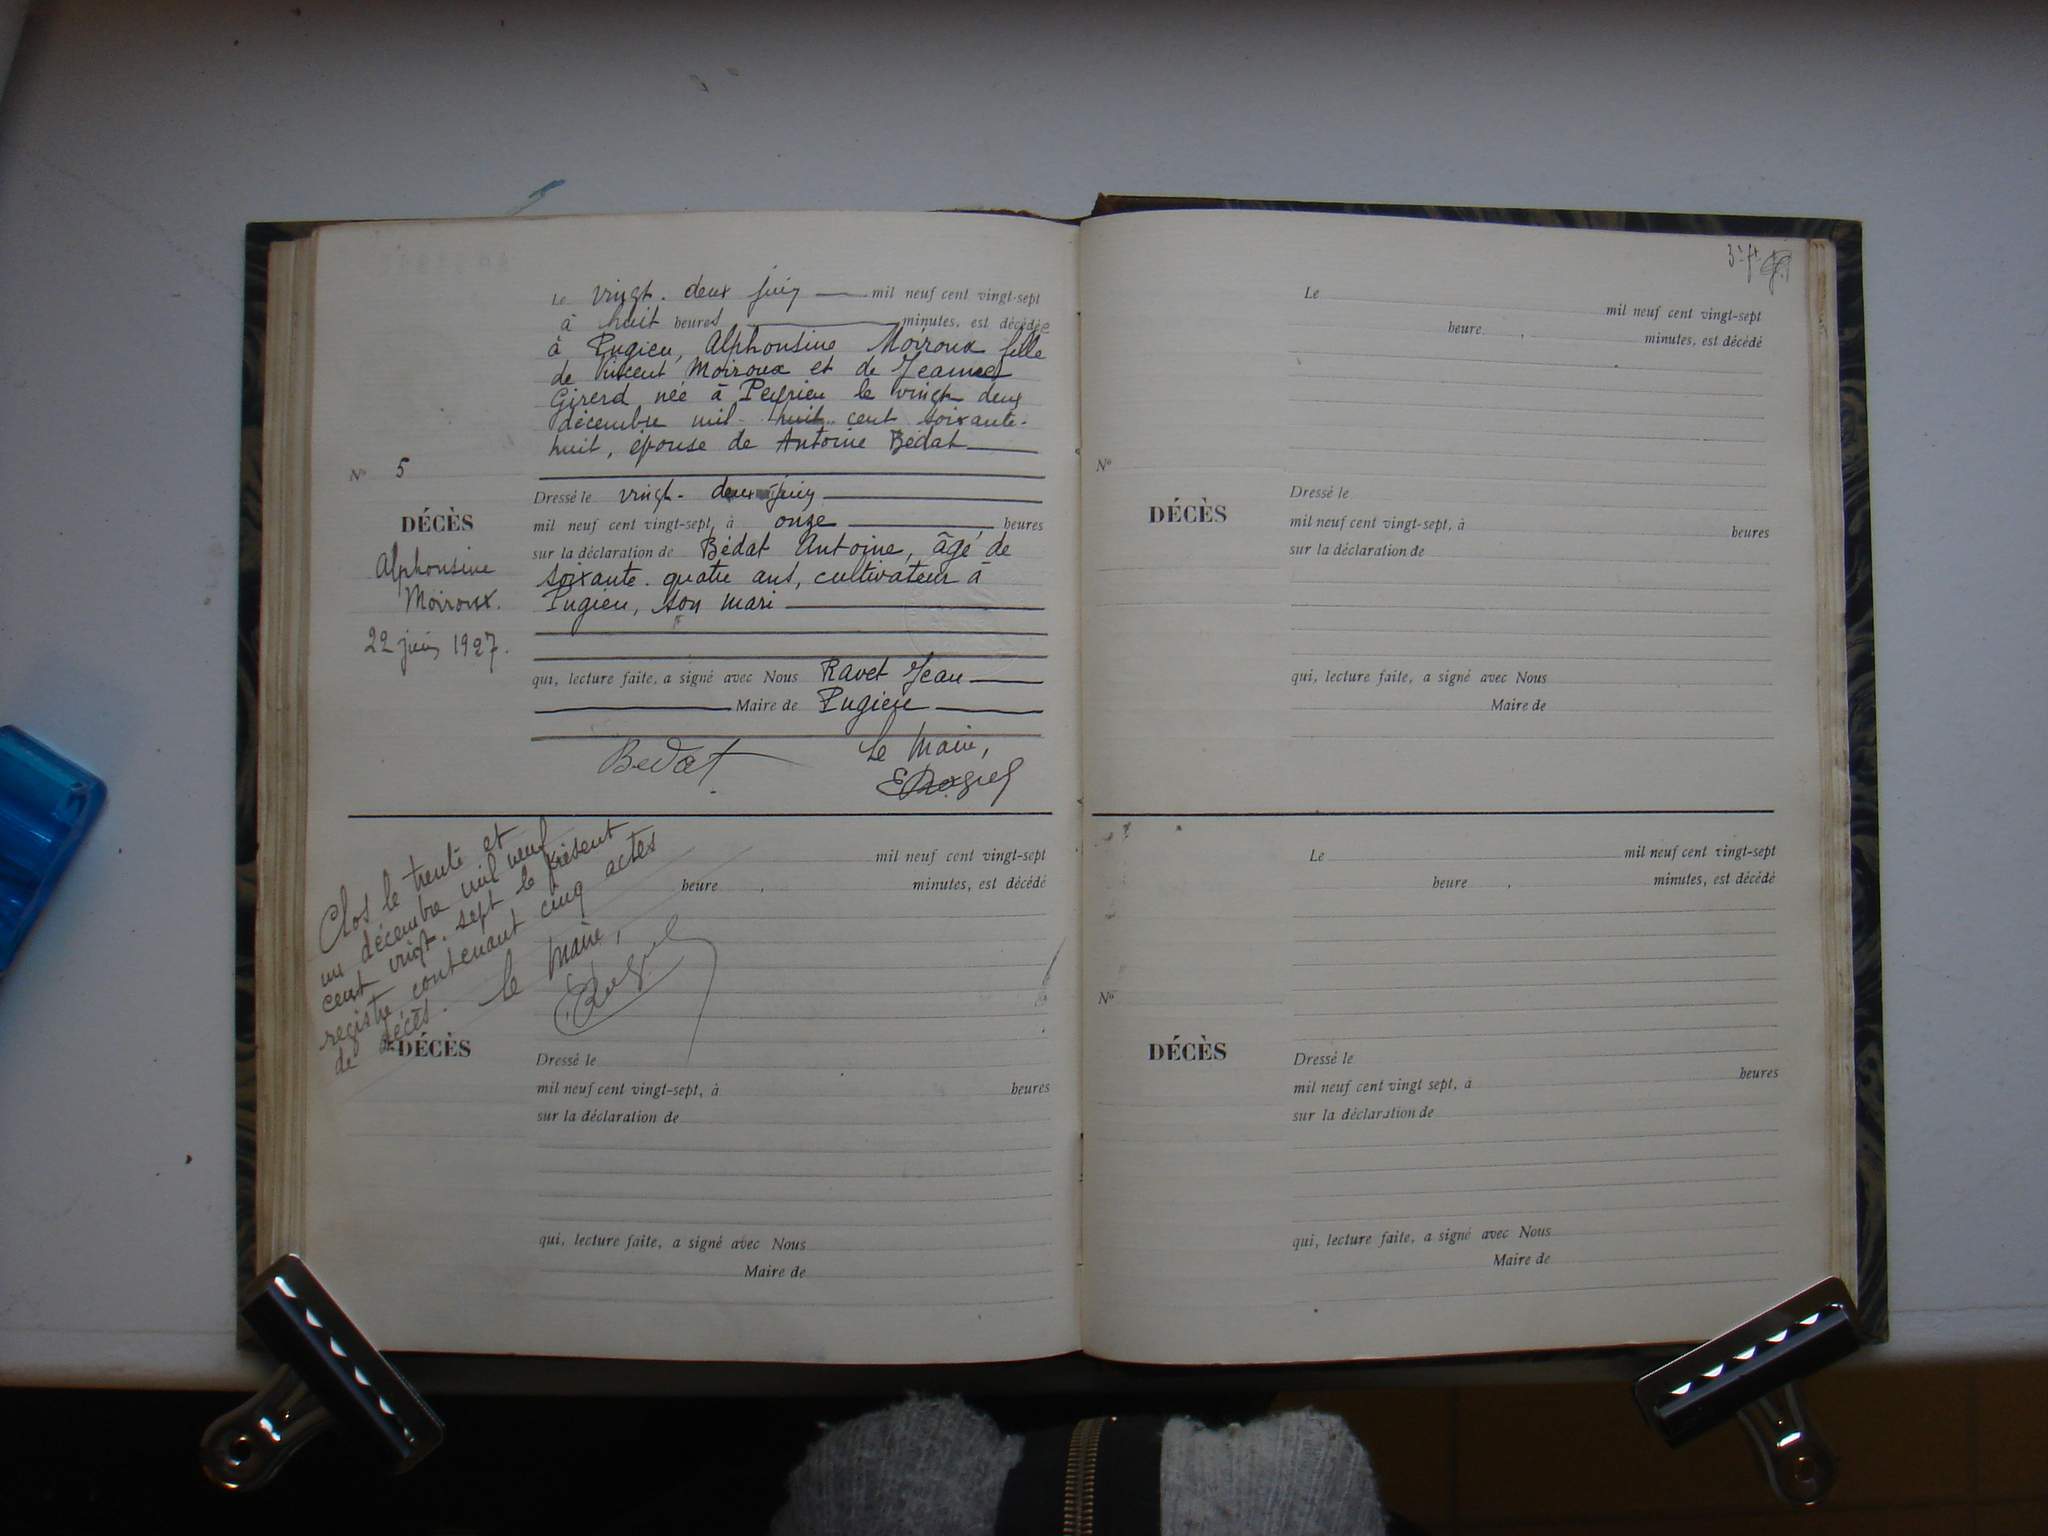 Le vingt-deux juin mil neuf cent vingt-sept
à huit heures minutes, est décédée
à Pugieu, Alphonsine Moiroux fille
de Vincent Moiroux et de Jeanne
Girerd née à Peyrieu le vingt deux
décembre mil huit cent soixante-
huit, épouse de Antoine Bédat
N° 5
DÉCÈS
Alphonsine
Moiroux.
22 juin 1927.
Dressé le vingt-deux juin
mil neuf cent vingt-sept, à onze heures
sur la déclaration de Bédat Antoine, âgé de
soixante-quatre ans, cultivateur à
Pugieu, son mari
qui, lecture faite, a signé avec Nous Ravet Jean
Maire de Pugieu
Bedat
Le Maire,
Clos le trente et
un décembre mil neuf
cent vingt-sept le présent
registre contenant cinq actes
de décès. Le Maire,
mil neuf cent vingt-sept
heure minutes, est décédé
DÉCÈS
Dressé le
mil neuf cent vingt-sept, à heures
sur la déclaration de
qui, lecture faite, a signé avec Nous
Maire de
Le
mil neuf cent vingt-sept
heure minutes, est décédé
N°
DÉCÈS
Dressé le
mil neuf cent vingt-sept, à heures
sur la déclaration de
qui, lecture faite, a signé avec Nous
Maire de
Le mil neuf cent vingt-sept
heure minutes, est décédé
N°
DÉCÈS
Dressé le
mil neuf cent vingt sept, à heures
sur la déclaration de
qui, lecture faite, a signé avec Nous
Maire de